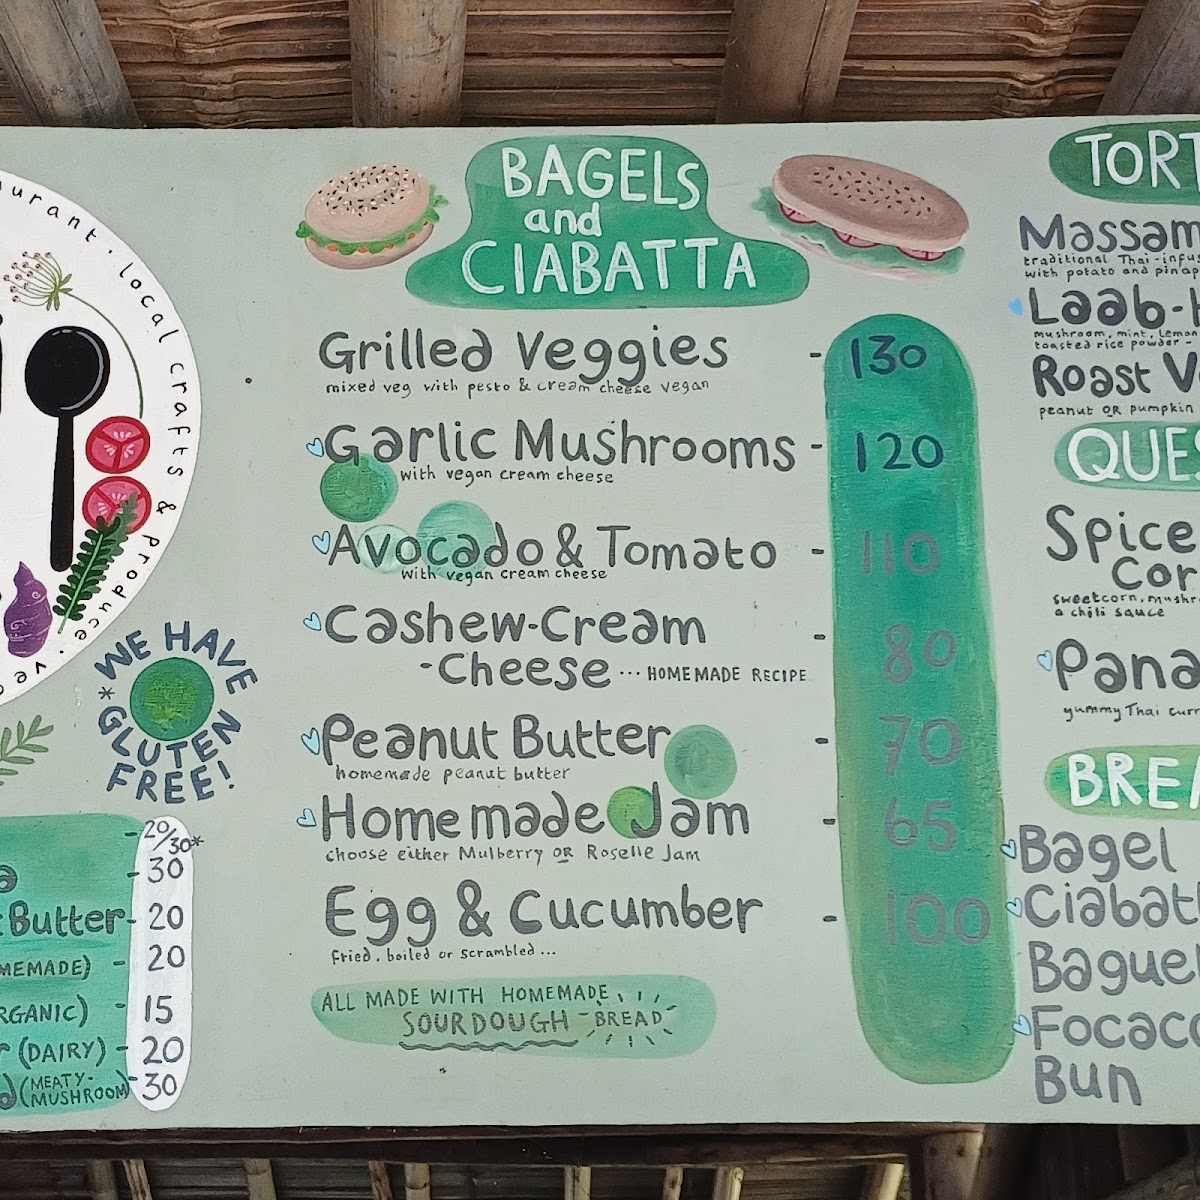 urant · local crafts & produce · ve
* WE HAVE
GLUTEN
FREE!
20/30*
30
Butter - 20
MEMADE) - 20
RGANIC) - 15
(DAIRY) - 20
(MEATY-
MUSHROOM) 30
BAGELS
and
CIABATTA
Grilled Veggies - 130
mixed veg with pesto & cream cheese vegan
Garlic Mushrooms - 120
with vegan cream cheese
Avocado & Tomato - 110
with vegan cream cheese
Cashew-Cream - 80
-Cheese ... HOMEMADE RECIPE
Peanut Butter - 70
homemade peanut butter
Homemade Jam - 65
choose either Mulberry OR Roselle Jam
Egg & Cucumber - 100
Fried. boiled or scrambled ...
ALL MADE WITH HOMEMADE
SOURDOUGH - BREAD
TORT
Massam
traditional Thai-infus
with potato and pinap
Laab-
mushroom, mint, Lemon
toasted rice powder -
Roast V
peanut OR pumpkin
QUES
Spice
Cor
sweetcorn, mushr
a chili sauce
Pana
yummy Thai curr
BREA
Bagel
Ciabat
Bague
Focacc
Bun